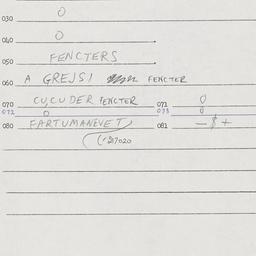 030 0
040 0
050 FENCTERS
060 A GREJS! FENCTER
070 CUCUDER FENCTER 071 0
072 0 073 0
080 FARTUMANEVET 081 - $ +
217020